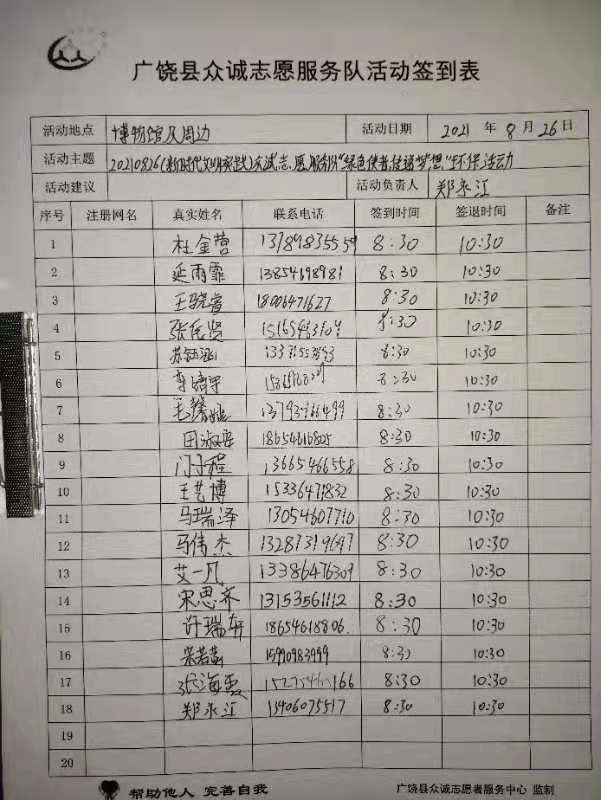 广饶县众诚志愿服务队活动签到表
活动地点 博物馆及周边 活动日期 2021 年 8 月 26 日
活动主题 20210826(新时代文明实践)众诚志愿服务队"绿色使者,传递梦想"环保活动
活动建议 活动负责人 郑永江
序号 注册网名 真实姓名 联系电话 签到时间 签退时间 备注
1 杜金营 13789835559 8:30 10:30
2 延雨霏 13854698981 8:30 10:30
3 王晓睿 18006471627 8:30 10:30
4 8:30 10:30
5 8:30 10:30
6 8:30 10:30
7 8:30 10:30
8 田淑雯 18654616805 8:30 10:30
9 门子程 13665466558 8:30 10:30
10 王艺博 15336471832 8:30 10:30
11 马瑞泽 13054607710 8:30 10:30
12 马伟杰 13287319697 8:30 10:30
13 艾一凡 13386476309 8:30 10:30
14 宋思齐 13153561112 8:30 10:30
15 许瑞轩 18654618806 8:30 10:30
16 15990983999 8:30 10:30
17 张海霞 8:30 10:30
18 郑永江 15406075517 8:30 10:30
19
20
帮助他人 完善自我 广饶县众诚志愿者服务中心 监制